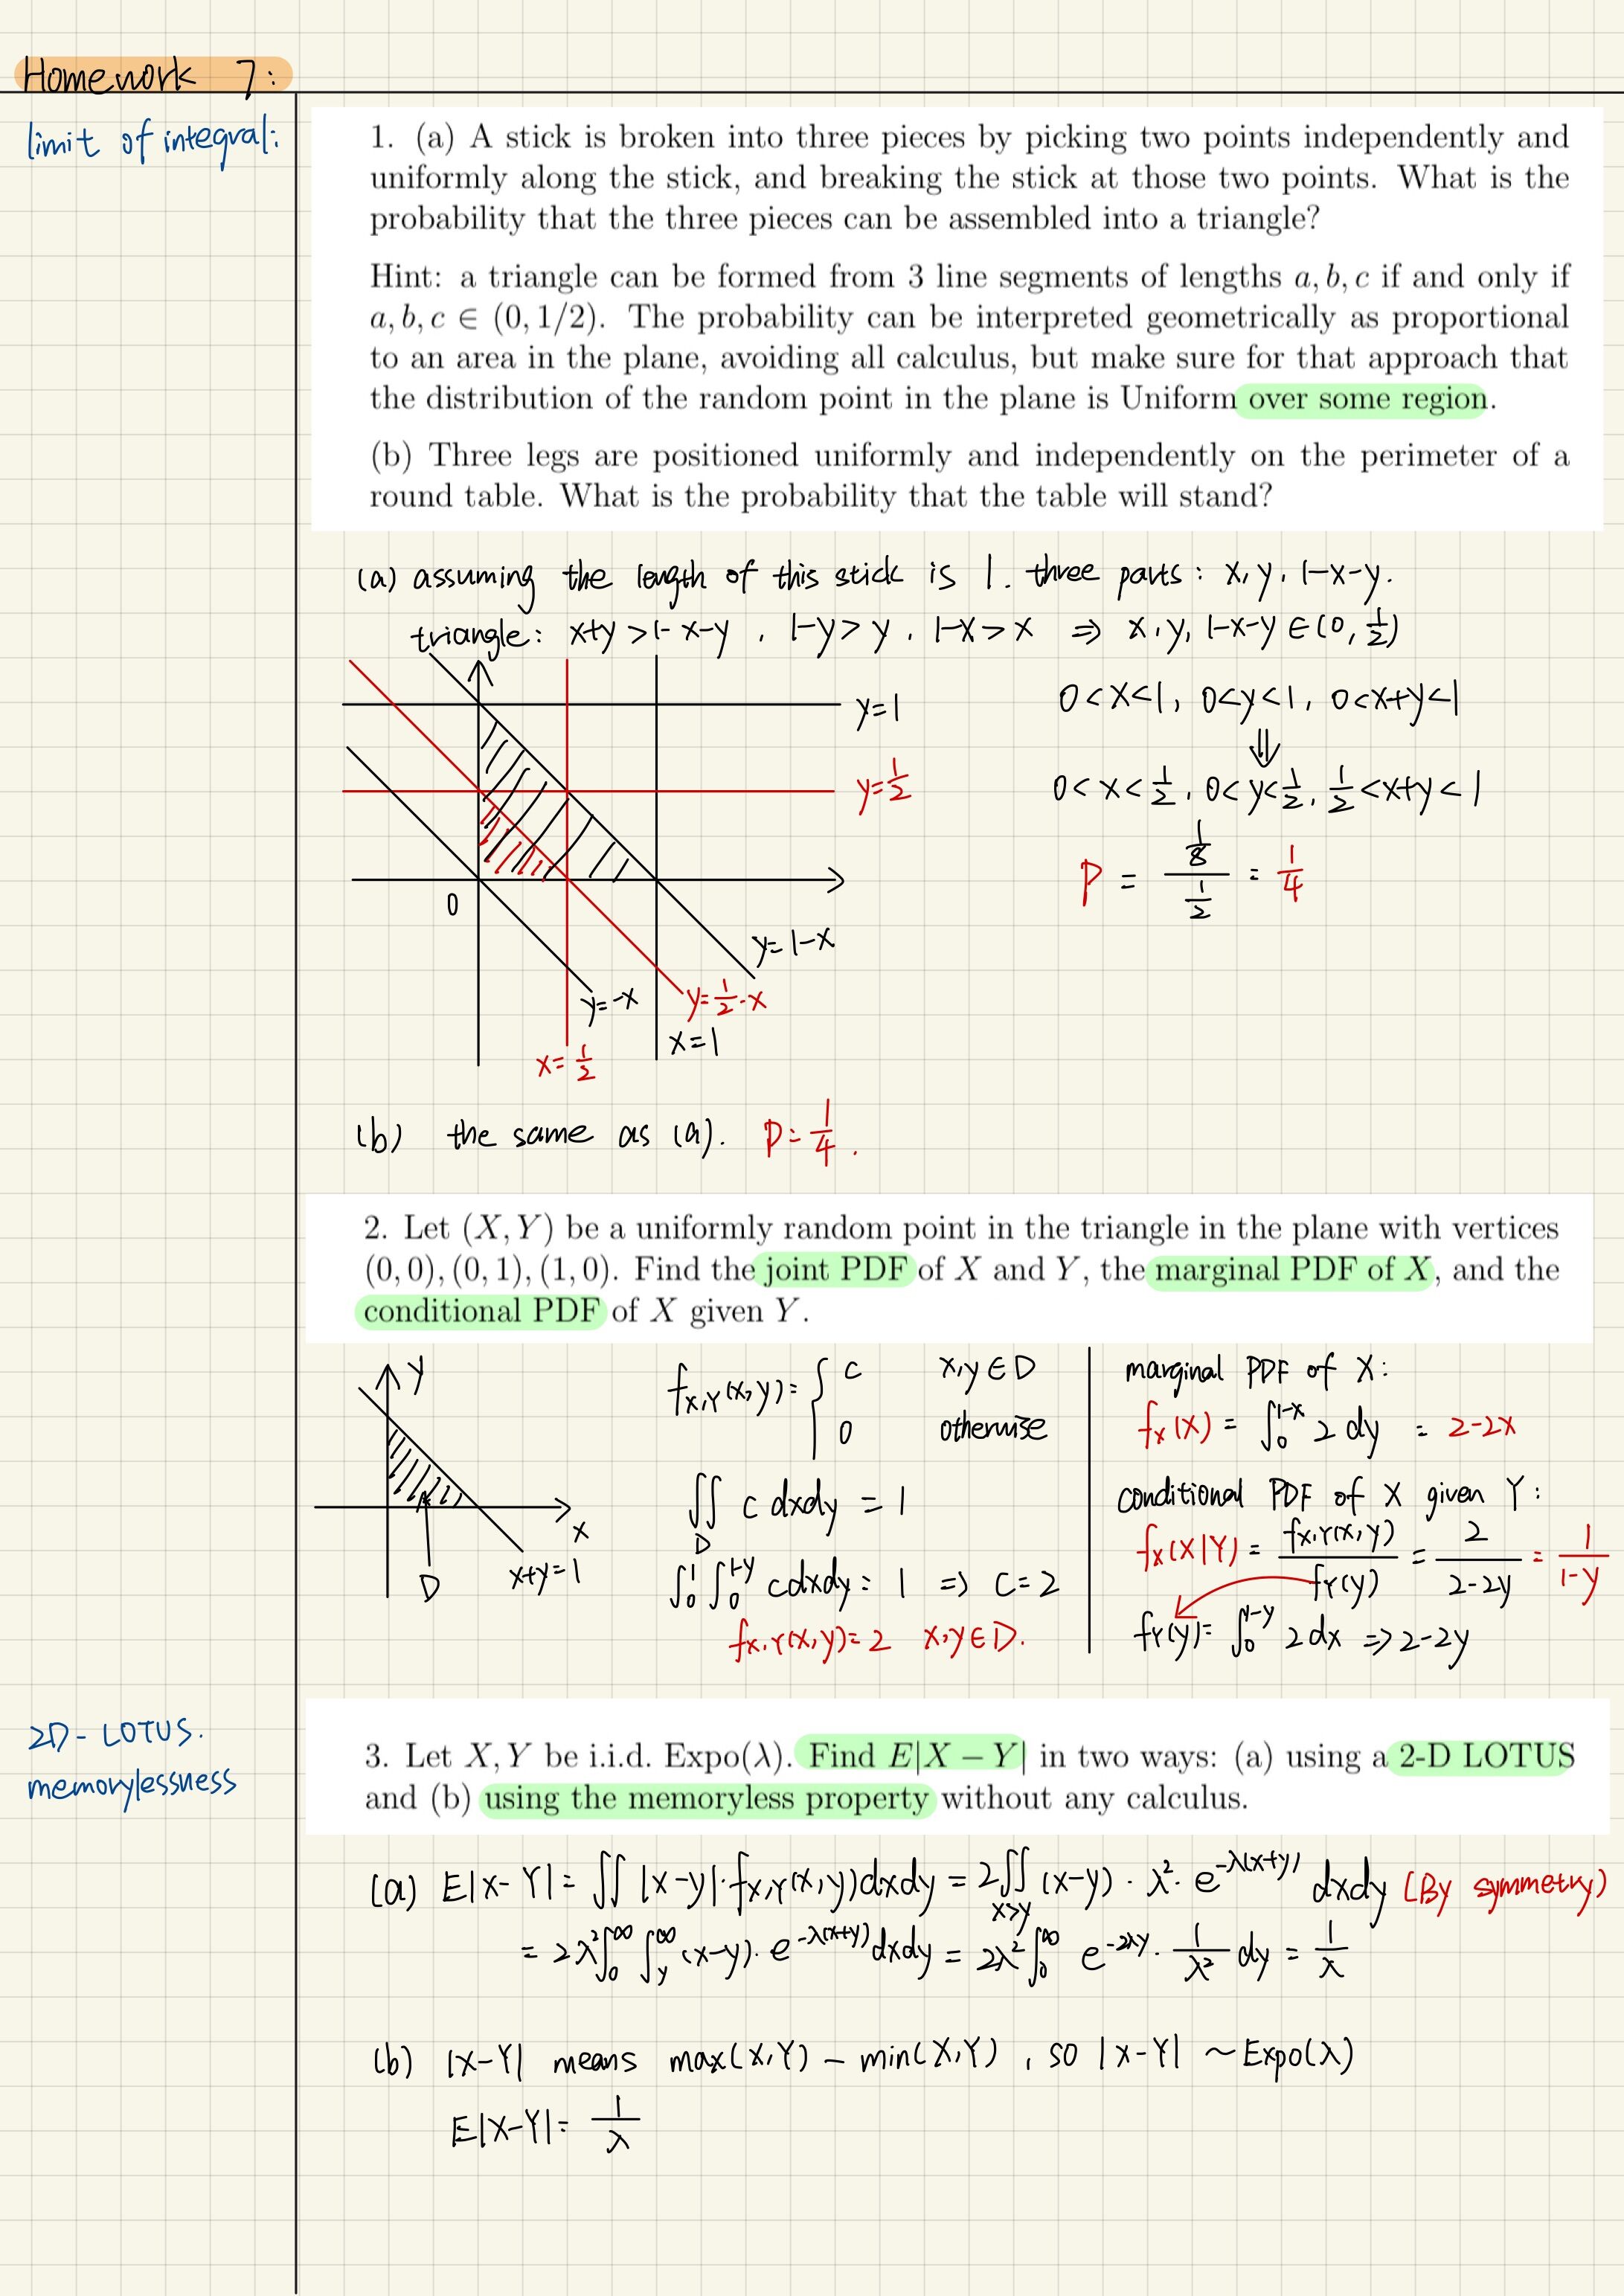 Homework 7:
limit of integral:
1. (a) A stick is broken into three pieces by picking two points independently and
uniformly along the stick, and breaking the stick at those two points. What is the
probability that the three pieces can be assembled into a triangle?
Hint: a triangle can be formed from 3 line segments of lengths a, b, c if and only if
a, b, c ∈ (0, 1/2). The probability can be interpreted geometrically as proportional
to an area in the plane, avoiding all calculus, but make sure for that approach that
the distribution of the random point in the plane is Uniform over some region.
(b) Three legs are positioned uniformly and independently on the perimeter of a
round table. What is the probability that the table will stand?
(a) assuming the length of this stick is 1. three parts: x, y, 1-x-y.
triangle: x+y > 1-x-y, 1-y > y, 1-x > x ⇒ x, y, 1-x-y ∈ (0, 1/2)
0<x<1, 0<y<1, 0<x+y<1
⇓
0<x<1/2, 0<y<1/2, 1/2<x+y<1
P = (1/8)/(1/2) = 1/4
y=1
y=1/2
0
y=1-x
y=-x
y=1/2-x
x=1
x=1/2
(b) the same as (a). P=1/4.
2. Let (X, Y) be a uniformly random point in the triangle in the plane with vertices
(0, 0), (0, 1), (1, 0). Find the joint PDF of X and Y, the marginal PDF of X, and the
conditional PDF of X given Y.
y
x
D
x+y=1
f_{X,Y}(x,y) = { c x,y ∈ D
0 otherwise
∬_D c dxdy = 1
∫_0^1 ∫_0^{1-y} c dxdy = 1 ⇒ c=2
f_{X,Y}(x,y)=2 x,y ∈ D.
marginal PDF of X:
f_X(x) = ∫_0^{1-x} 2 dy = 2-2x
conditional PDF of X given Y:
f_X(X|Y) = f_{X,Y}(x,y)/f_Y(y) = 2/(2-2y) = 1/(1-y)
f_Y(y) = ∫_0^{1-y} 2dx ⇒ 2-2y
2D-LOTUS.
memorylessness
3. Let X, Y be i.i.d. Expo(λ). Find E|X − Y| in two ways: (a) using a 2-D LOTUS
and (b) using the memoryless property without any calculus.
(a) E|X-Y| = ∬ |x-y|·f_{X,Y}(x,y)dxdy = 2∬_{x>y} (x-y)·λ²·e^{-λ(x+y)} dxdy (By symmetry)
= 2λ²∫_0^∞ ∫_y^∞ (x-y)·e^{-λ(x+y)} dxdy = 2λ²∫_0^∞ e^{-2λy}·1/λ² dy = 1/λ
(b) |X-Y| means max(X,Y) − min(X,Y), so |X-Y| ~ Expo(λ)
E|X-Y| = 1/λ